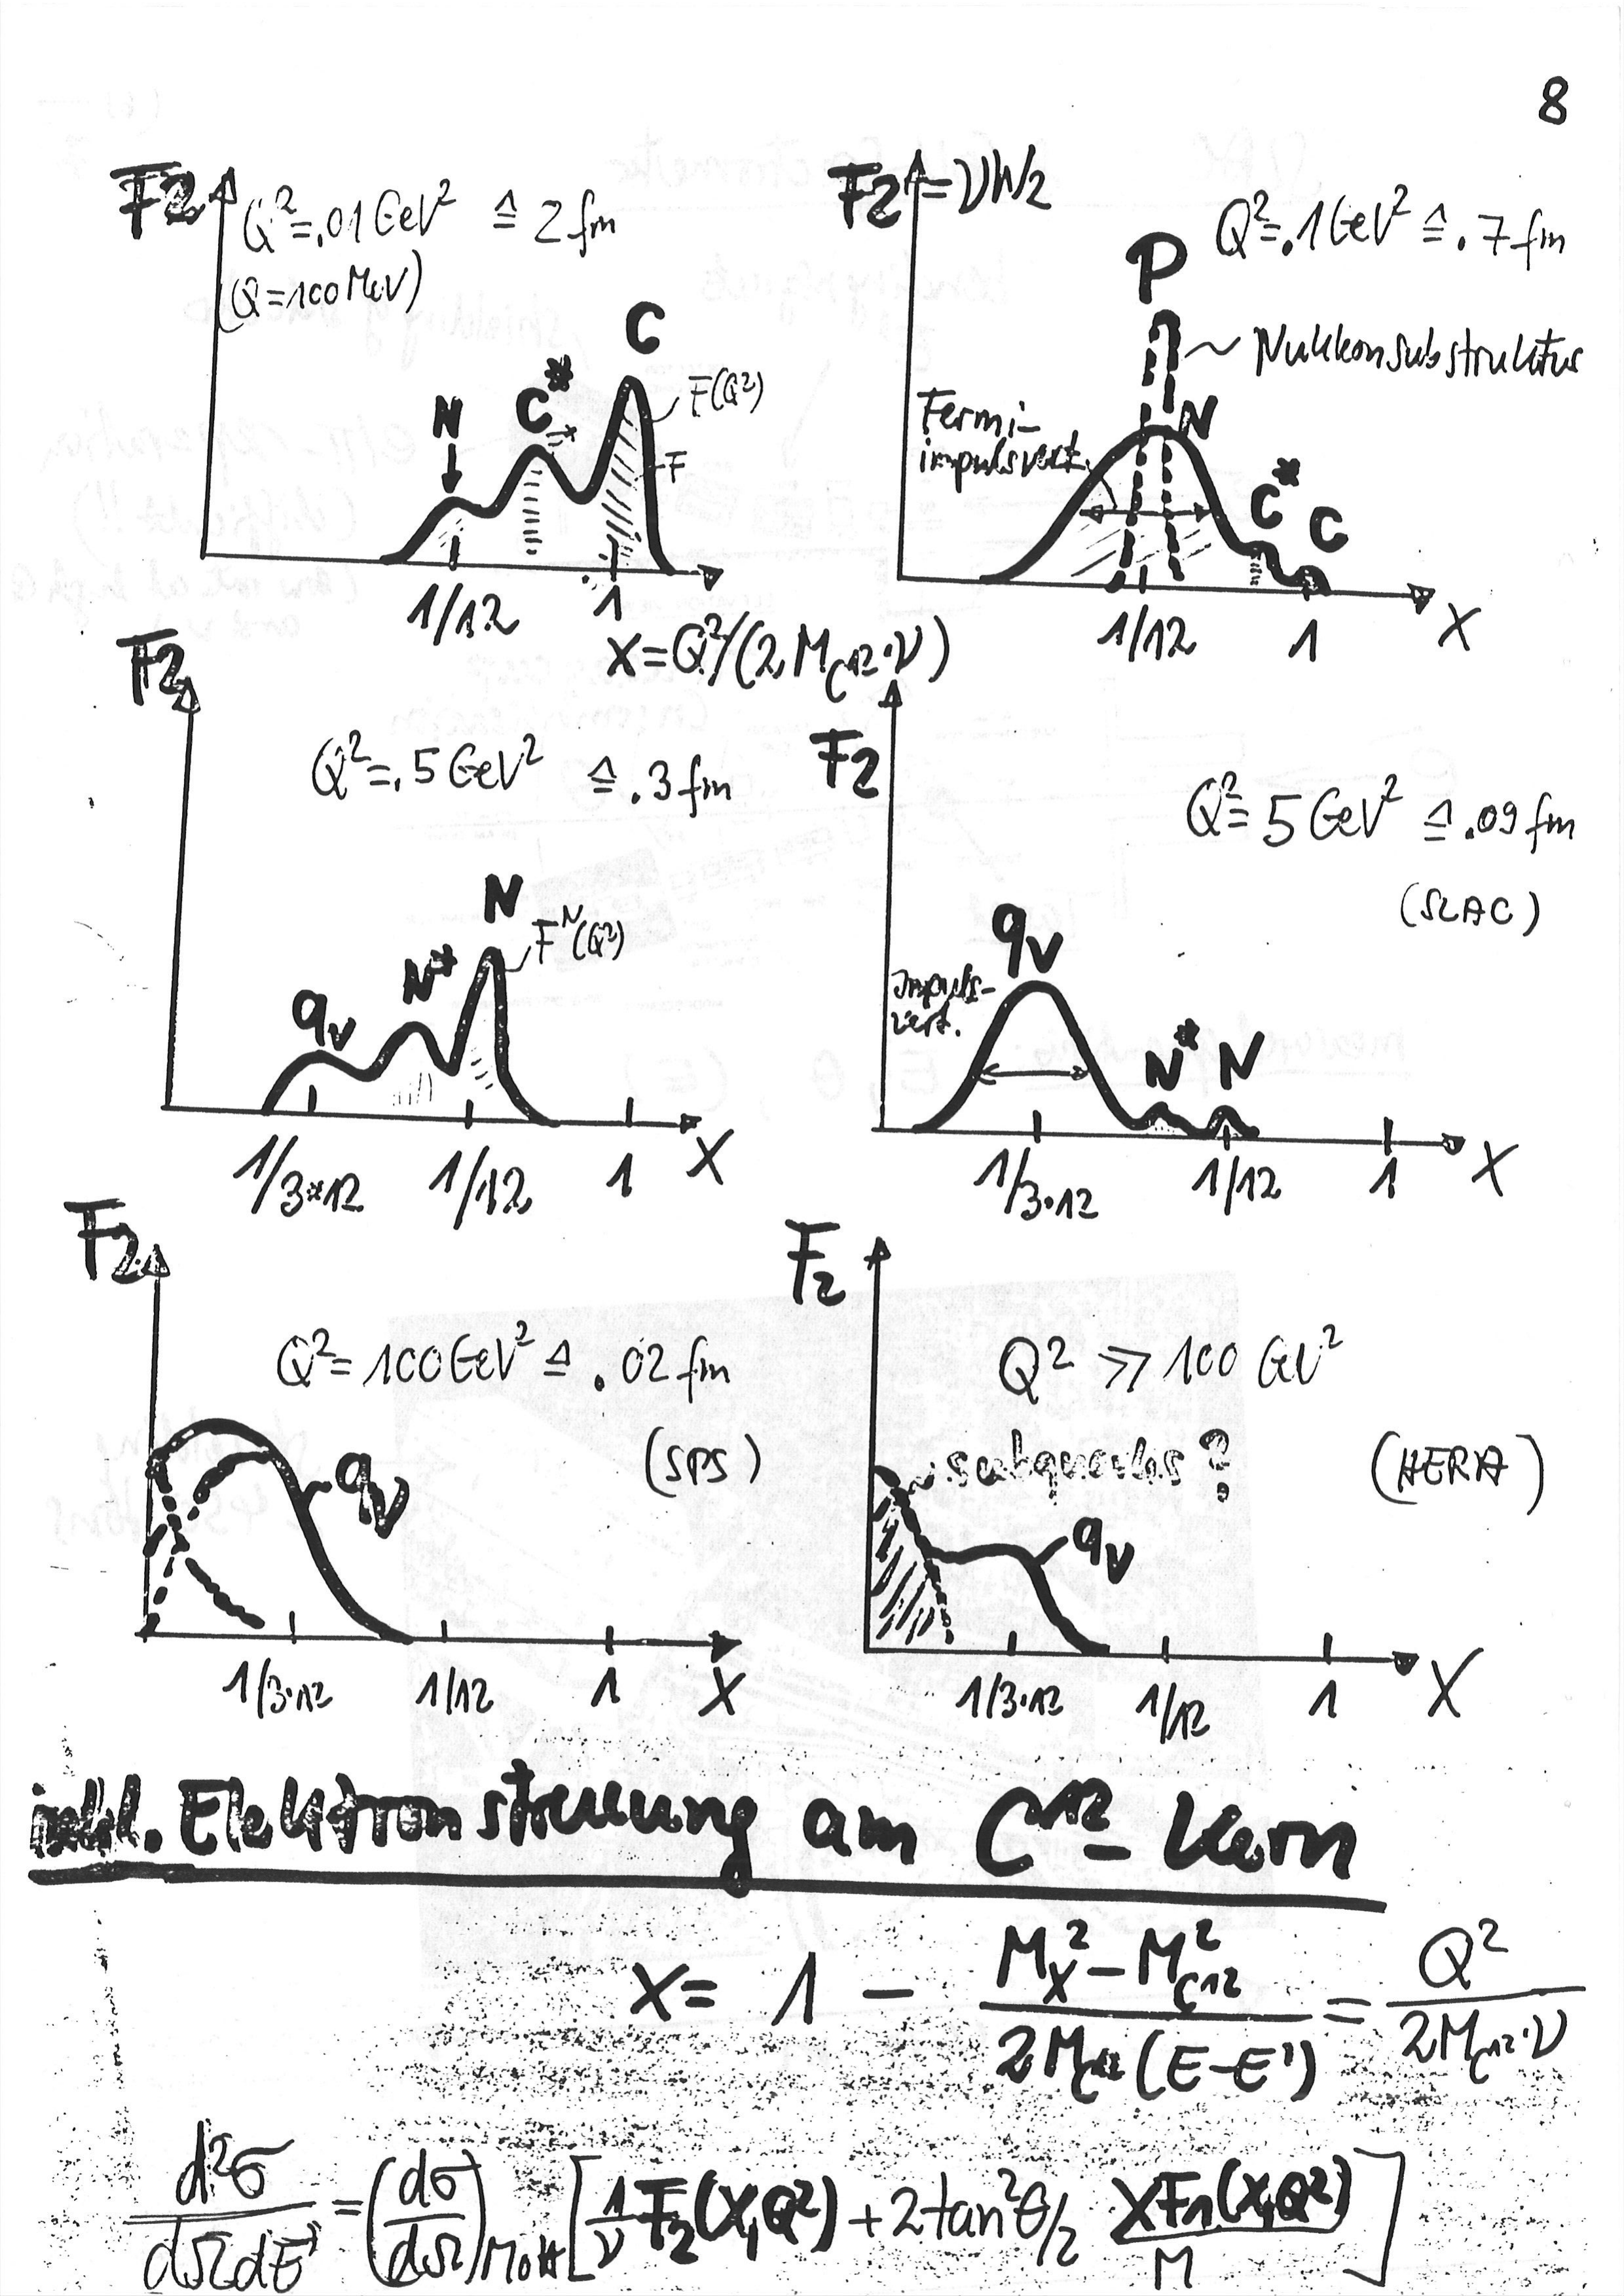 8
F2
Q²=.01 GeV² ≙ 2 fm
(Q=100 MeV)
C
C*
N
F(Q²)
F
1/12
1
X=Q²/(2 M_C12·ν)
F2=νW2
Q²=.1 GeV² ≙ .7 fm
P
Nukleonsubstruktur
Fermi-
impulsvert.
N
C*
C
1/12
1
X
F2
Q²=.5 GeV² ≙ .3 fm
N
F^N(Q²)
N*
qv
1/3*12
1/12
1
X
F2
Q²= 5 GeV² ≙ .09 fm
(SLAC)
qv
Impuls-
vert.
N*
N
1/3·12
1/12
1
X
F2
Q²= 100 GeV² ≙ .02 fm
(SPS)
qv
1/3·12
1/12
1
X
F2
Q² ≫ 100 GeV²
subquarks ?
(HERA)
qv
1/3·12
1/12
1
X
inkl. Elektronstreuung am C¹²-Kern
X= 1 − (M_X² − M_C12²)/(2 M_C12 (E−E')) = Q²/(2 M_C12·ν)
d²σ/dΩdE' = (dσ/dΩ)_Mott [1/ν F2(X,Q²) + 2 tan²θ/2 XF1(X,Q²)/M]